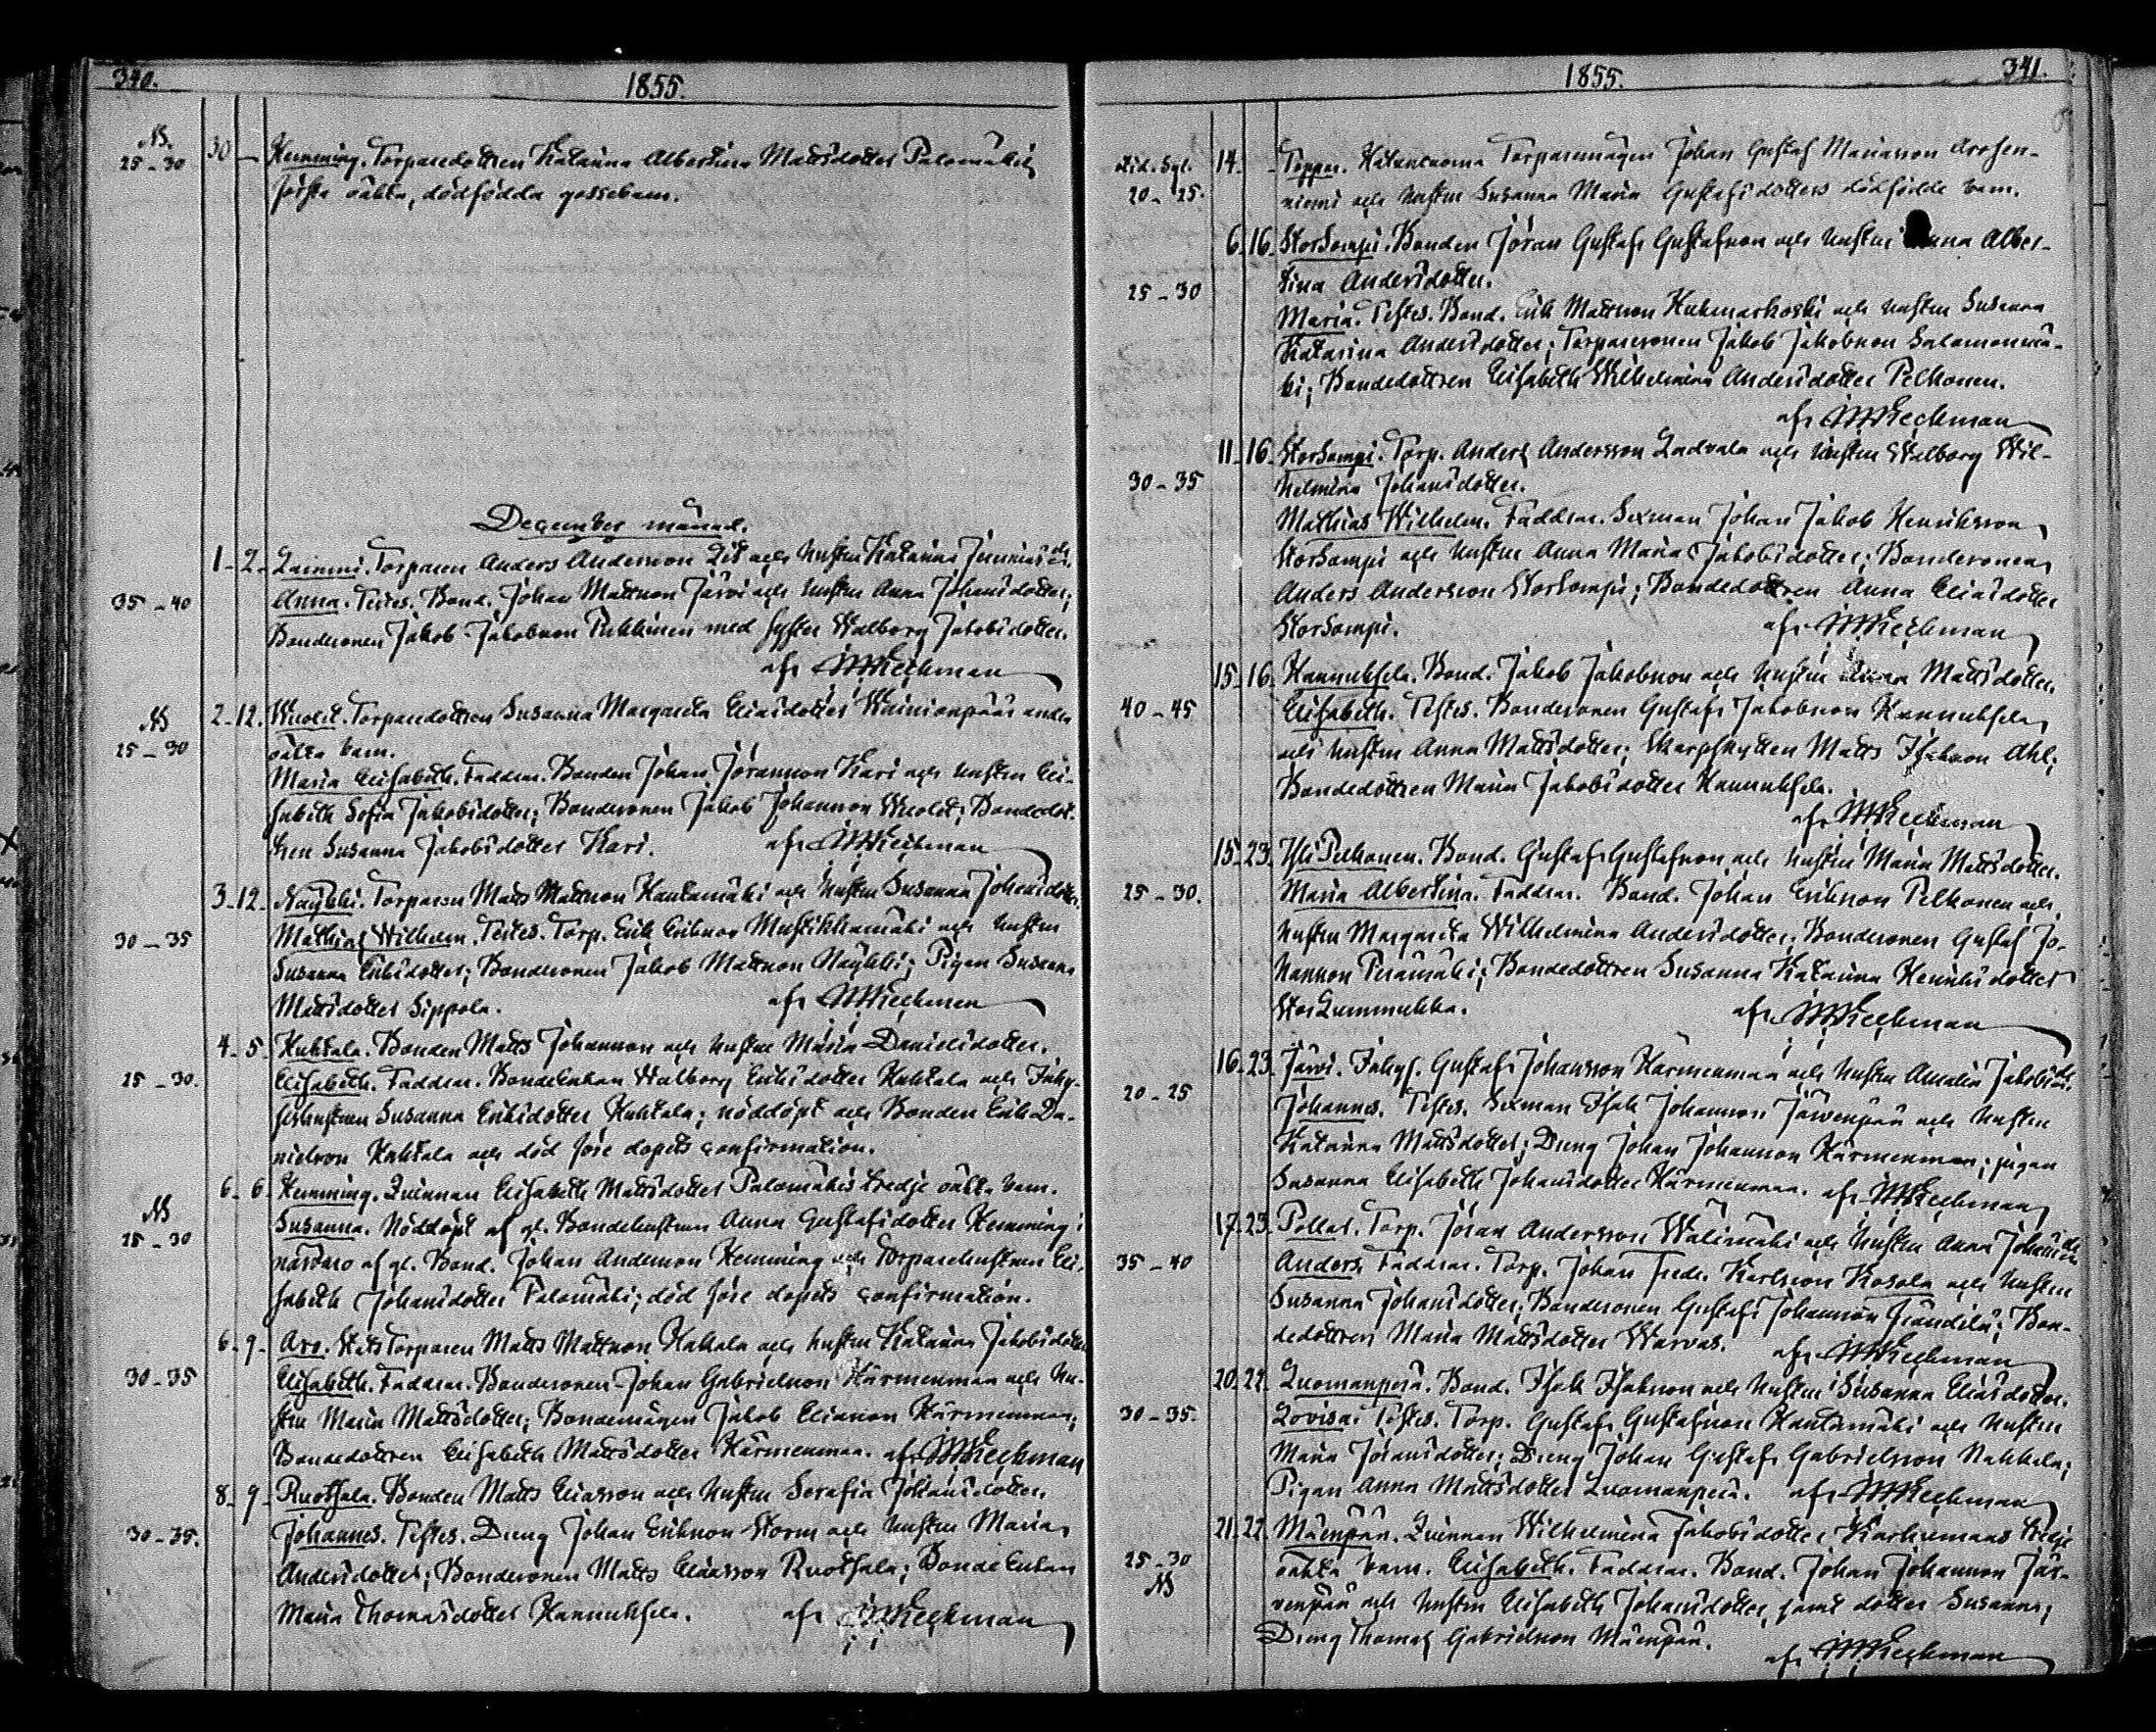 340. 1855.
NB. 25-30 30 — Hemming. Torparedottren Katarina Albertina Mattsdotter Palomäkis
första oäkta, dödfödda gossebarn.
December månad.
1-2- Anders Andersson och hustru Katarina
35-40 Anna. Testes. Bond. Johan Mattsson Järvi och hustru Anna Johansdotter;
Bondesonen Jakob Jakobsson med syster Walborg Jakobsdotter.
af
NB 2-12. Torparedottren Susanna Margareta Eliasdotter Wainionpääs andra
25-30 oäkta barn.
Maria Elisabeth. Faddrar. Bonden Johan Jöransson Kari och hustru Eli-
sabeth Sofia Jakobsdotter; Bondesonen Jakob Johansson Bondedot-
tren Susanna Jakobsdotter Kari. af
3-12- Näykki. Torparen Matts Mattsson Hautamäki och hustru Susanna Johansdotter.
30-35 Mathias Wilhelm. Testes. Torp. Erik Eriksson och hustru
Susanna Eriksdotter; Bondesonen Jakob Mattsson Näykki; Pigan Susanna
Mattsdotter Sippola. af
4-5- Huhtala. Bonden Matts Johansson och hustru Maria Danielsdotter.
25-30. Elisabeth. Faddrar. Bondeenkan Walborg Eriksdotter Huhtala och Inhy-
seshustrun Susanna Eriksdotter Huhtala; nöddöpt och Bonden Erik Da-
nielsson Huhtala och död före dopets confirmation.
6-6- Hemming. Qvinnan Elisabeth Mattsdotter Palomäkis tredje oäkta barn.
NB Susanna. Nöddöpt af gl. Bondehustrun Anna Gustafsdotter Hemming i
25-30 närvaro af gl. Bond. Johan Andersson Hemming och Torparehustrun Eli-
sabeth Johansdotter Palomäki; död före dopets confirmation.
6-9- Aro. Torparen Matts Mattsson Hakala och hustru Katarina Jakobsdotter
30-35 Elisabeth. Faddrar. Bondesonen Johan Gabrielsson Härmenmaa och hu-
stru Maria Mattsdotter; Bondemågen Jakob Eliasson Härmenmaa;
Bondedottren Elisabeth Mattsdotter Härmenmaa. af
8-9- Ruotsala. Bonden Matts Eliasson och hustru Serafia Johansdotter.
30-35. Johannes. Testes. Dräng Johan Eriksson Storm och hustru Maria
Andersdotter; Bondesonen Matts Eliasson Ruotsala; Bonde Enkan
Maria Thomasdotter Hannuksela. af
1855. 341.
14. Toppar. Torparemågen Johan Gustaf Mariasson
20-25. och hustru Susanna Maria Gustafsdotters dödfödde barn.
6-16- Storsompi. Bonden Jöran Gustaf Gustafsson och hustru Anna Alber-
25-30 tina Andersdotter.
Maria. Testes. Bond. Erik Mattsson Kuhmarkoski och hustru Susanna
Katarina Andersdotter; Torparesonen Jakob Jakobsson Salomonmä-
ki; Bondedottren Elisabeth Wilhelmina Andersdotter Pelkonen.
af
11-16- Storsompi. Torp. Anders Andersson Ladvala och hustru Walborg Wil-
30-35 helmina Johansdotter.
Mathias Wilhelm. Faddrar. Sexman Johan Jakob Henriksson
Storsompi och hustru Anna Maria Jakobsdotter; Bondesonen
Anders Andersson Storsompi; Bondedottren Anna Eliasdotter
Storsompi. af
15-16- Hannuksela. Bond. Jakob Jakobsson och hustru Anna Mattsdotter.
40-45 Elisabeth. Testes. Bondesonen Gustaf Jakobsson Hannuksela
och hustru Anna Mattsdotter; Skarpskytten Matts Isaksson Ahl;
Bondedottren Maria Jakobsdotter Hannuksela.
af
15-23. Yli Pelkonen. Bond. Gustaf Gustafsson och hustru Maria Mattsdotter.
25-30. Maria Albertina. Faddrar. Bond. Johan Eriksson Pelkonen och
hustru Margareta Wilhelmina Andersdotter; Bondesonen Gustaf Jo-
hansson Perämäki; Bondedottren Susanna Katarina Henriksdotter
Stor Lummukka. af
16-23. Järvi. Inhys. Gustaf Johansson Härmenmaa och hustru Amalia Jakobsdr.
20-25 Johannes. Testes. Sexman Isak Johansson Järvenpää och hustru
Katarina Mattsdotter; Dräng Johan Johansson Härmenmaa; pigan
Susanna Elisabeth Johansdotter Härmenmaa. af
17-23. Pollar. Torp. Jöran Andersson Wälimäki och hustru Anna
35-40 Anders. Faddrar. Torp. Johan Fredr. Karlsson Kosola och hustru
Susanna Johansdotter; Bondesonen Gustaf Johansson Bon-
dedottren Maria Mattsdotter Warvas. af
20-22. Luomanperä. Bond. Isak Isaksson och hustru Susanna Eliasdotter.
30-35. Lovisa. Testes. Torp. Gustaf Gustafsson Hautamäki och hustru
Maria Jöransdotter; Dräng Johan Gustaf Gabrielsson Nahkala;
Pigan Anna Mattsdotter Luomanperä. af
21-22. Mäenpää. Qvinnan Wilhelmina Jakobsdotter tredje
25-30 NB oäkta barn. Elisabeth. Faddrar. Bond. Johan Johansson Jär-
venpää och hustru Elisabeth Johansdotter, samt dotter Susanna;
Dräng Thomas Gabrielsson Mäenpää.
af